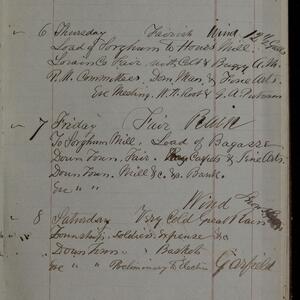 6 Thursday Wind
Load of Sorghum to House Mill.
Lorain Co Fair with Colt & Buggy A.M.
P.M. Committees. Dem, Man & Fine Arts.
Eve Meeting. W. Root & G. A.
7 Friday Fair Rain
To Sorghum Mill. Load of Bagasse
Down Town. Fair. Carpets & Fine Arts.
Down Town. Mill &c &c. Bank.
Eve " "
Wind
8 Saturday Very Cold Great Rain
Township. Soldiers. Expense &c
Down Town " Baskets
Eve " " Preliminary to Election Garfield